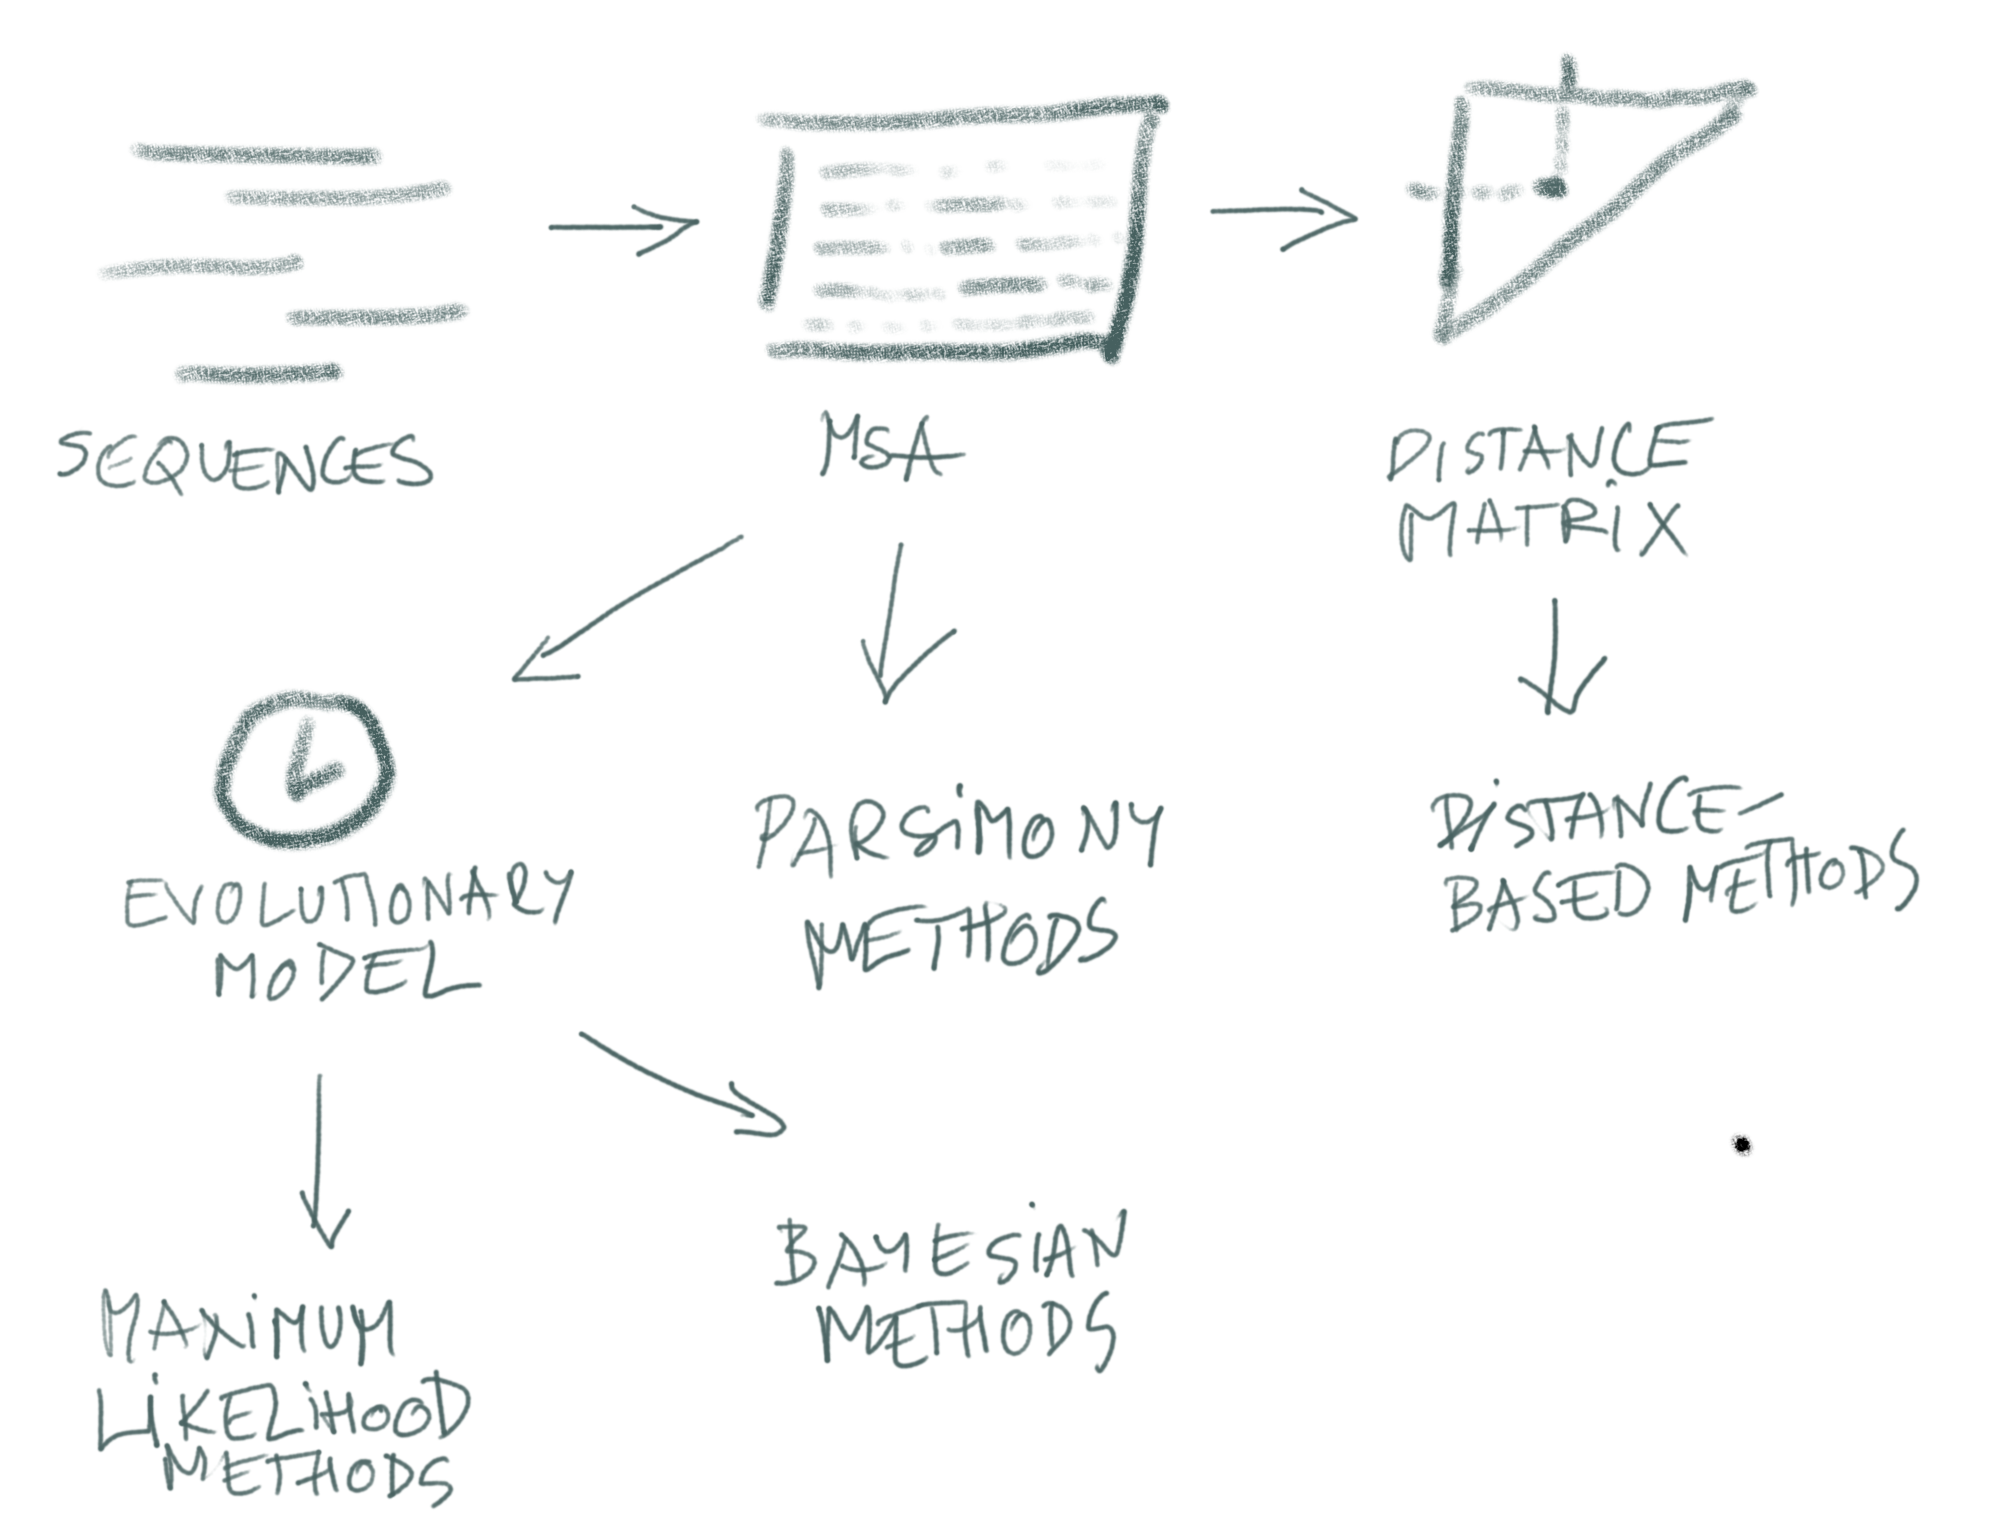 SEQUENCES
MSA
DISTANCE
MATRIX
EVOLUTIONARY
MODEL
PARSIMONY
METHODS
DISTANCE-
BASED METHODS
MAXIMUM
LIKELIHOOD
METHODS
BAYESIAN
METHODS